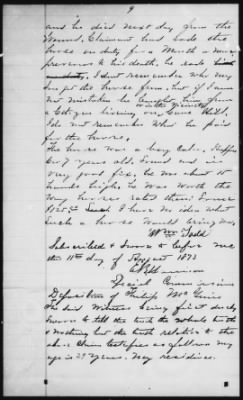 9
and he died next day from the
wound. Claimant had rode the
horse on duty for a Month or more
previous to his death, he rode
on duty. I dont remember who they
got the horse from, but if I am
not mistaken he bought him from
a Citizen living on Sand Hill.
I do not remember what he paid
for the horse,
The horse was a bay Color.
6 or 7 years old. Sound and in
very good fix, he was about 15
hands high, he was worth the
way horses rated there
$125.00 I have no idea what
such a horse would bring now,
Wm Todd
Subscribed & Sworn to before me
the 11th day of August 1873
Special Commissioner
Deposition of Philip McGuire
The said Witness being first duly
Sworn to tell the truth the whole truth
& nothing but the truth relative to the
above Claim testifies as follows my
age is 29 years. My residence